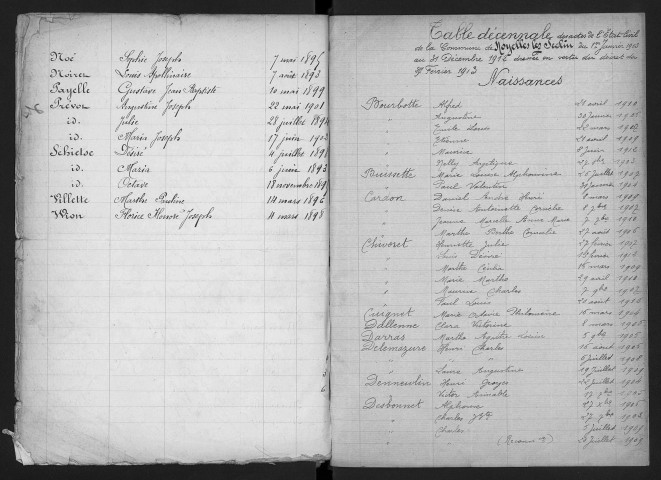 Noé Sophie Joseph 7 mai 1895
Noirez Louis Apollinaire 7 août 1893
Payelle Gustave Jean Baptiste 10 mai 1899
Prévos Augustine Joseph 22 mai 1901
id. Julie 28 juillet 1894
id. Maria Joseph 17 juin 1902
Schietse Désiré 4 juillet 1891
id. Maria 6 juin 1893
id. Octave 18 novembre 189
Villette Marthe Pauline 14 mars 1896
Wion Florice Florose Joseph 4 mars 1898
Table décennale des actes de l'Etat Civil
de la Commune de Noyelles lez Seclin du 1er Janvier 1903
au 31 Décembre 1912 dressée en vertu du décret du
Février 1913
Naissances
Bourbotte Alfred 21 avril 1910
" Augustine 30 janvier 1905
" Emile Louis 22 mars 1903
" Etienne 21 août 1909
" Maurice 8 juin 1912
" Nelly 1903
Buissette Marie Louise Alphonsine 25 juillet 1907
" Paul Valentin janvier 1906
Cardon Daniel André Henri 8 mars 1909
" Denise Antoinette 1907
" Jeanne Marcelle Anne Marie 7 9bre 1910
" Marthe Berthe Cornélie 27 août 1906
Chivoret Henriette Julie 27 février 1907
" Louis Désiré février 1912
" Marthe Céulia 16 mars 1909
" Marie Marthe 29 avril 1910
" Maurice Charles 7 9bre 1907
" Paul Louis 20 août 1906
Cuignet Marie Claire Philomène 16 mars 1906
Dallenne Clara Victorine 8 mars 1905
Darras Martha 5 9bre 1905
Delemazure Henri Charles 16 août 1905
" " 6 juillet 1908
" Laura Augustine 19 juillet 1909
Denneulin Henri Georges juillet 1906
" Victor Aimable 17
Desbonnet Alphonse 27 Xbre 1905
" Charles 27 9bre 1903
" Charles juillet 1908
" juillet 1909